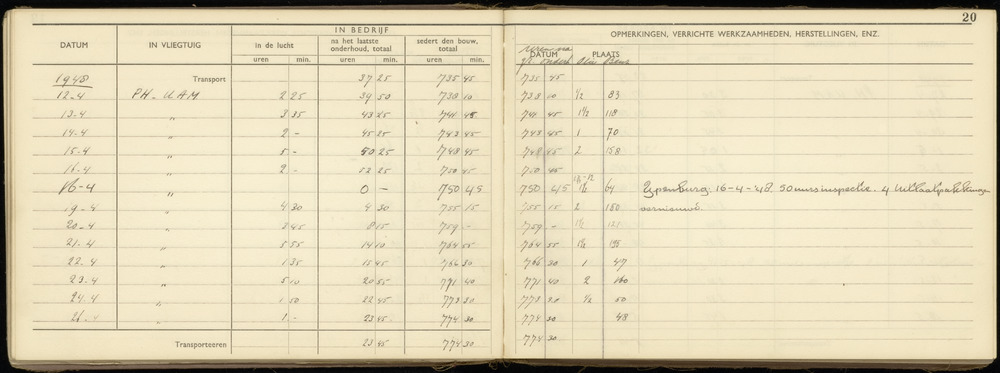 20
IN BEDRIJF
DATUM IN VLIEGTUIG in de lucht na het laatste onderhoud, totaal sedert den bouw, totaal OPMERKINGEN, VERRICHTE WERKZAAMHEDEN, HERSTELLINGEN, ENZ.
uren min. uren min. uren min. DATUM PLAATS
1948 Transport 37 25 735 45 735 45
12-4 PH-UAM 2 25 39 50 738 10 738 10 1/2 83
13-4 " 3 35 43 25 741 45 741 45 1 1/2 118
14-4 " 2 - 45 25 743 45 743 45 1 70
15-4 " 5 - 50 25 748 45 748 45 2 158
16-4 " 2 - 52 25 750 45 750 45
16-4 " 0 - 750 45 750 45 1 1/2 64 Ypenburg. 16-4-48 50 uursinspectie. 4 uitlaatpakkingen
19-4 " 4 30 4 30 755 15 755 15 2 150 vernieuwd.
20-4 " 3 45 8 15 759 - 759 - 1 1/2
21-4 " 5 55 14 10 764 55 764 55 1 1/2 195
22-4 " 1 35 15 45 766 30 766 30 1 47
23-4 " 5 10 20 55 771 40 771 40 2 160
24-4 " 1 50 22 45 773 30 773 30 1/2 50
26-4 " 1 - 23 45 774 30 774 30 48
Transporteeren 23 45 774 30 774 30